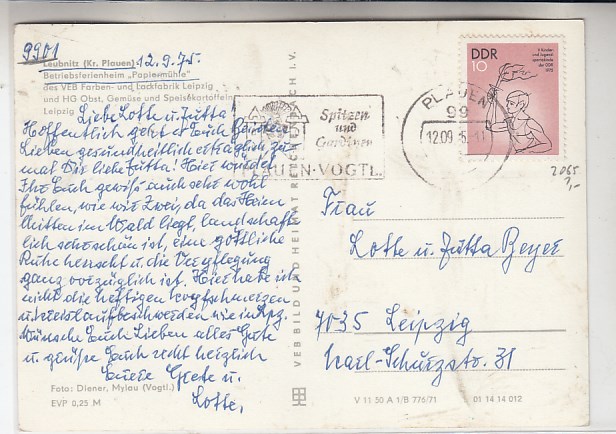 9901
12.9.75.
Leubnitz (Kr. Plauen)
Betriebsferienheim „Papiermühle"
des VEB Farben- und Lackfabrik Leipzig
und HG Obst, Gemüse und Speisekartoffeln
Leipzig
Liebe Lotte u. Jutta!
Hoffentlich geht es Euch beiden
Lieben gesundheitlich erträglich zu-
mal Dir liebe Jutta! Hier würdet
Ihr Euch gewiß auch sehr wohl
fühlen, wie wir Zwei, da das Heim
mitten im Wald liegt, landschaft-
lich sehr schön ist, eine göttliche
Ruhe herrscht u. die Verpflegung
ganz vorzüglich ist. Hier habe ich
nicht die heftigen Kopfschmerzen
u. Kreislaufbeschwerden wie in Lpzg.
Wünsche Euch Lieben alles Gute
u. grüße Euch recht herzlich
Eure Grete u.
Lotte.
Foto: Diener, Mylau (Vogtl.)
EVP 0,25 M
VEB BILD UND HEIMAT REICHENBACH I.V.
Spitzen
und
Gardinen
PLAUEN-VOGTL.
PLAUEN
99
12.09
DDR
10
2065
Frau
Lotte u. Jutta Beyer
7035 Leipzig
Karl-Schurzstr. 31
V 11 50 A 1/B 776/71
01 14 14 012